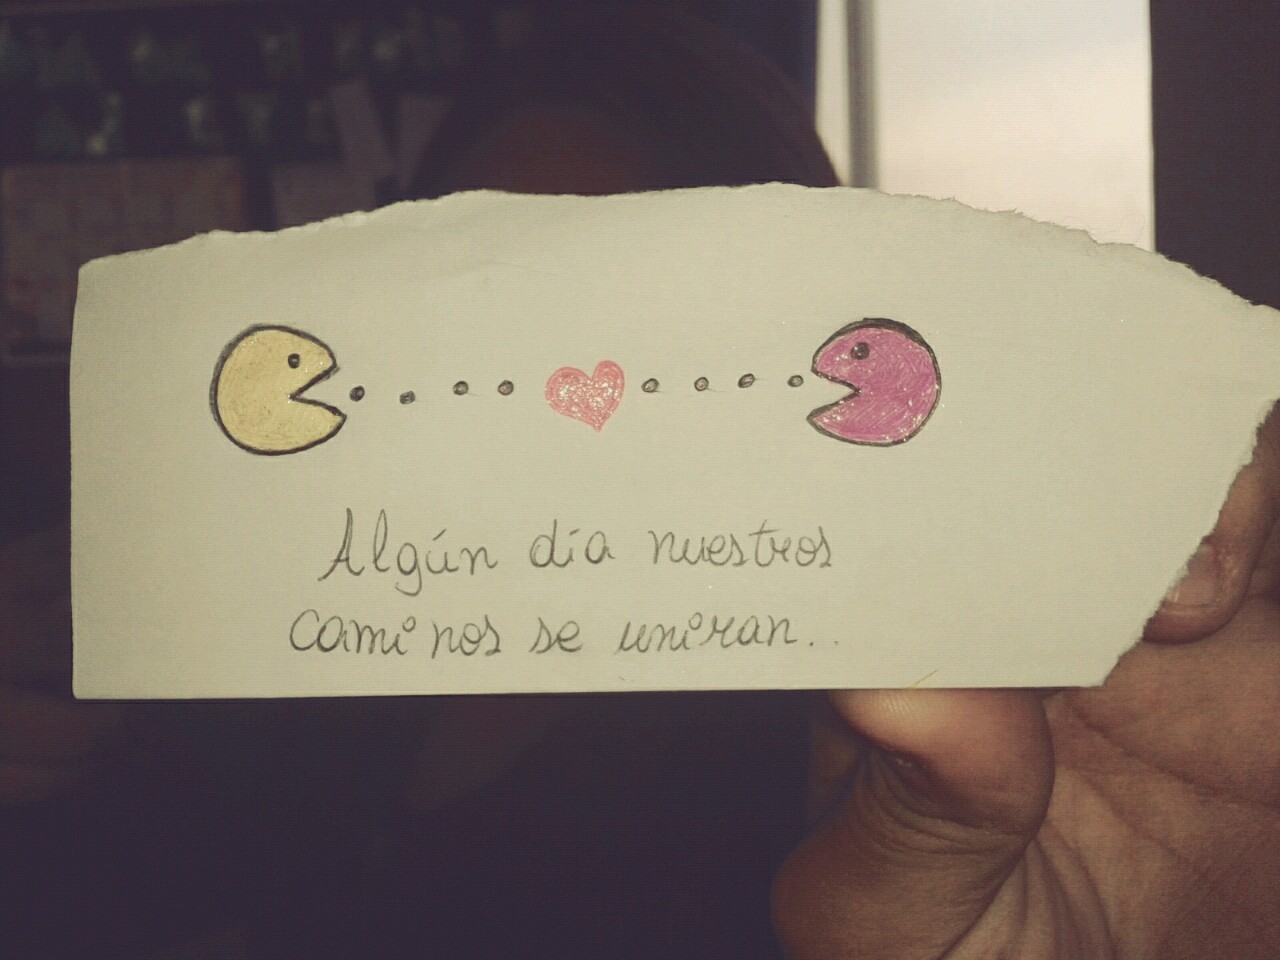 Algún día nuestros
caminos se uniran..